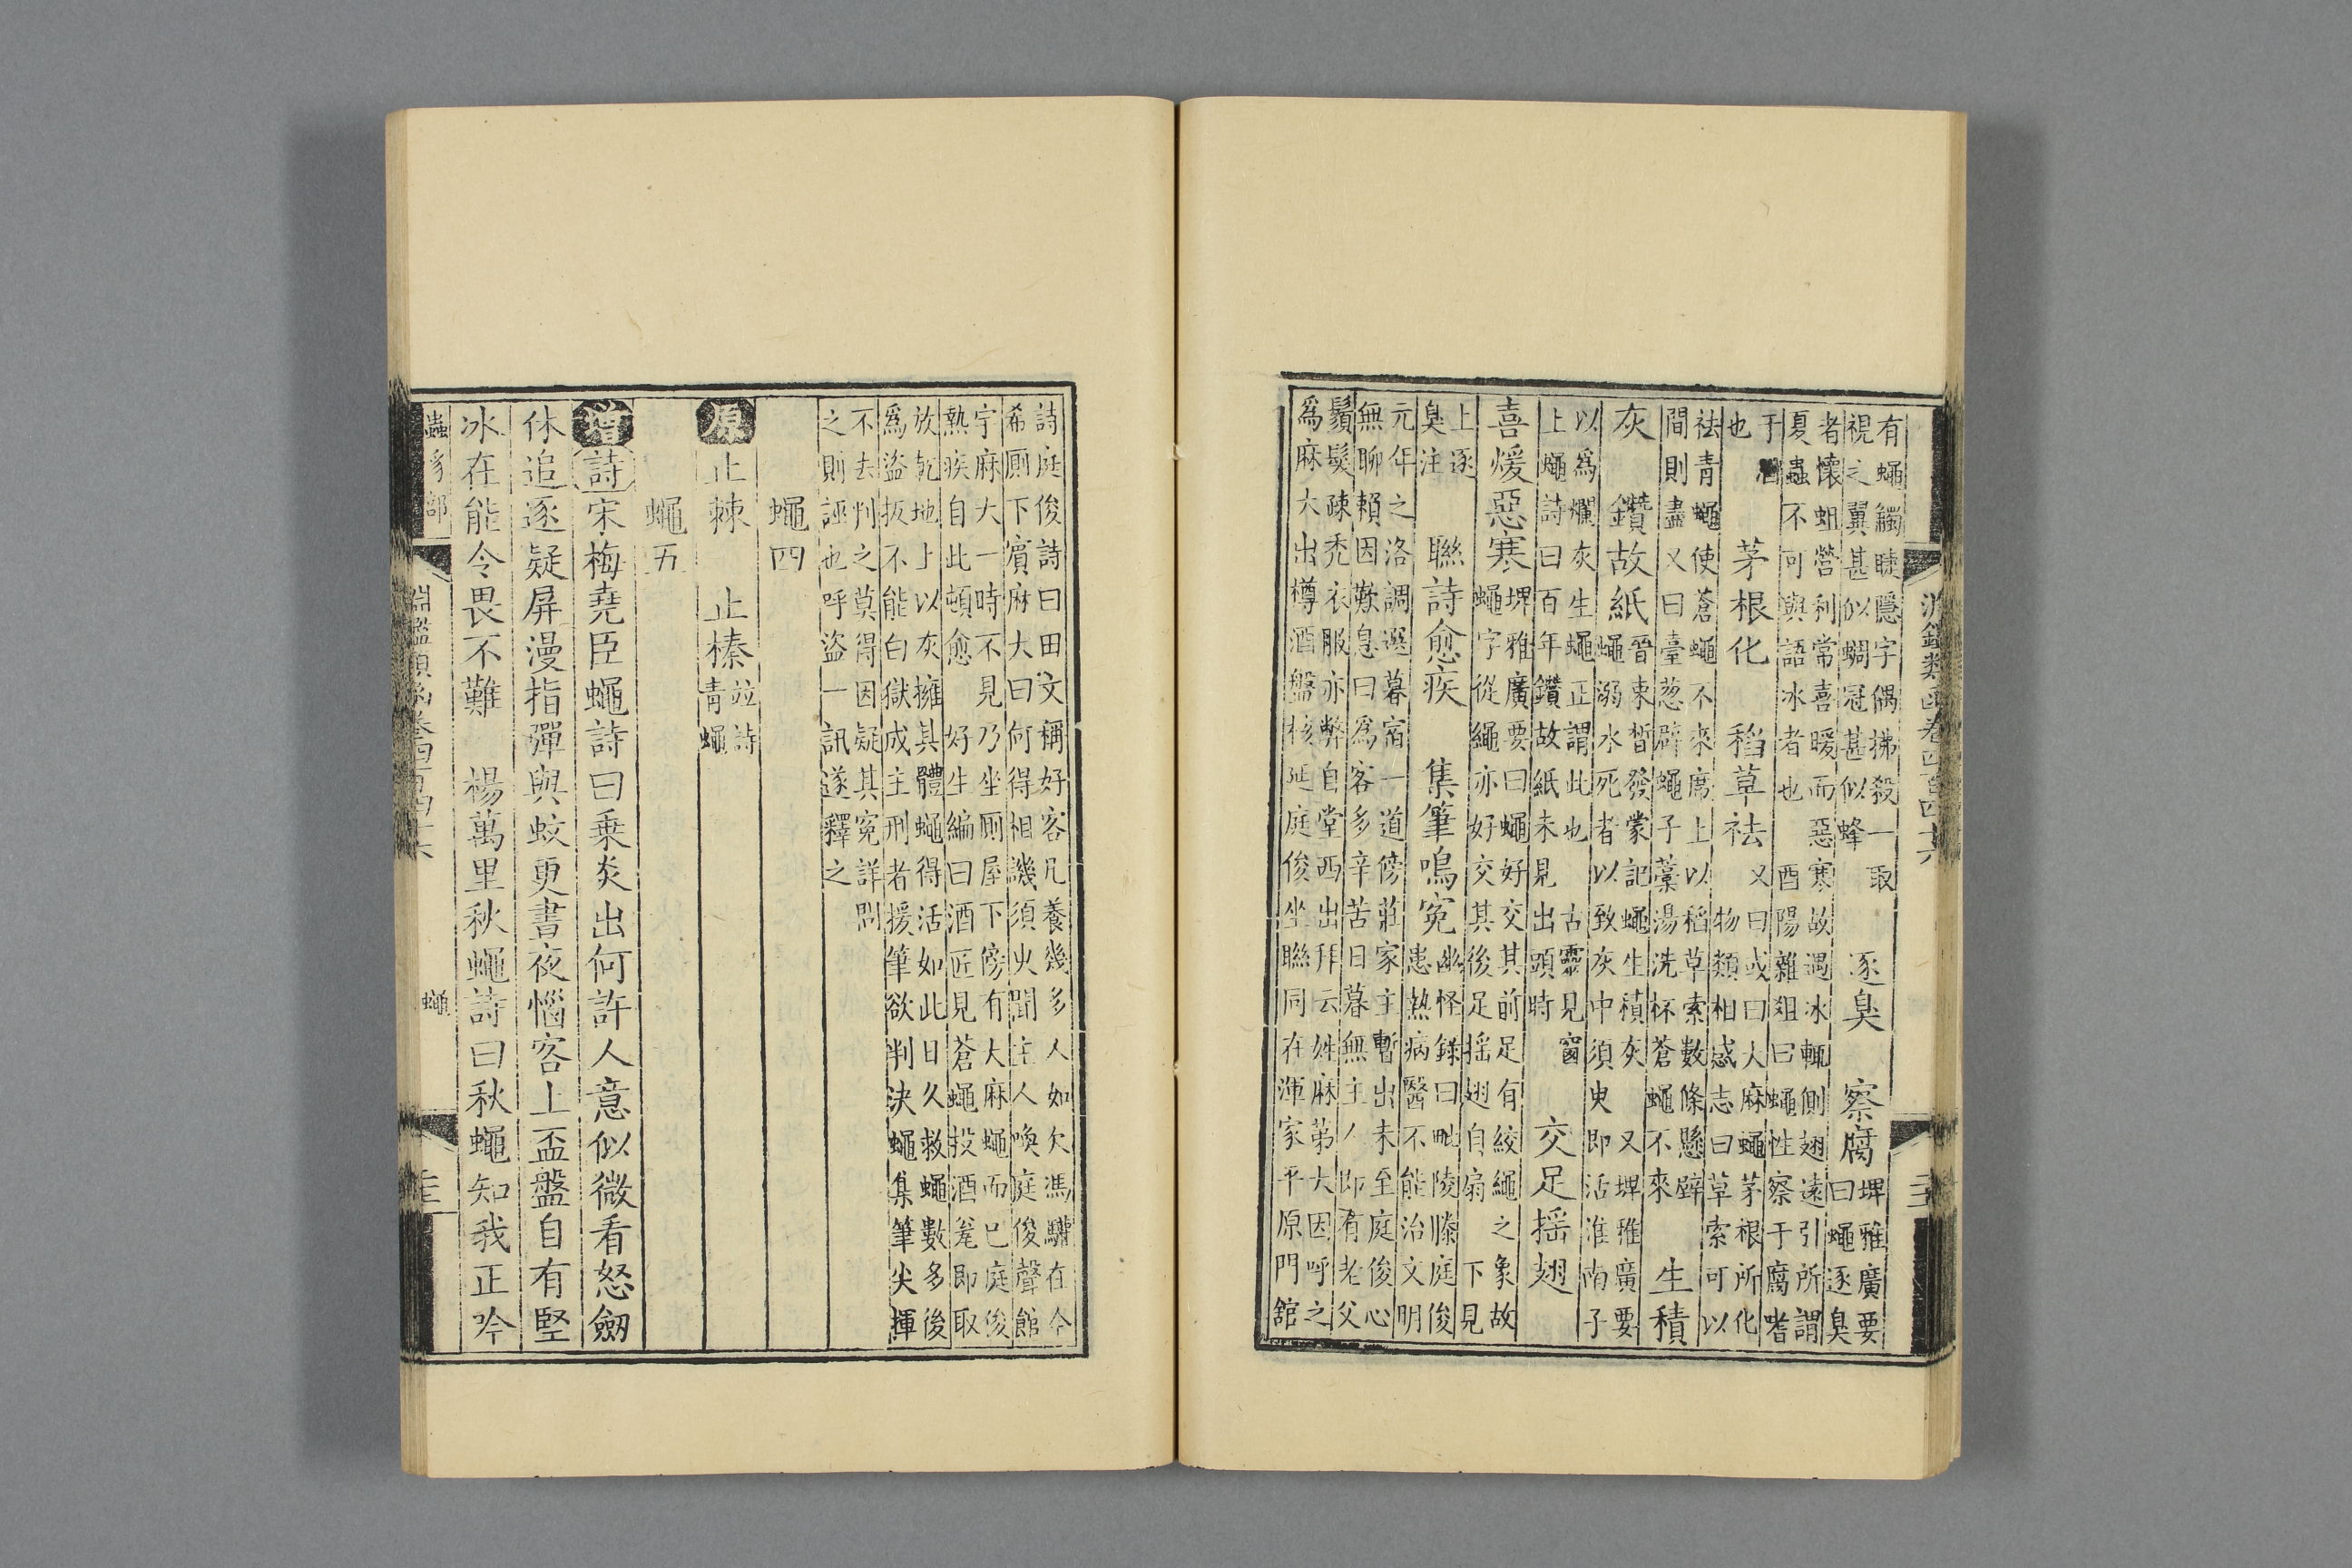 有蠅觸睫隱字偶拂殺一取
視之翼甚似蜩冠甚似蜂
逐臭　察腐
埤雅廣要
曰蠅逐臭
者懷蛆營利常喜暖而惡寒故遇冰輒側翅遠引所謂
夏蟲不可與語冰者也　酉陽雜俎曰蠅性察于腐嗜
于酒
也
茅根化　稻草祛
又曰或曰大麻蠅茅根所化
物類相感志曰草索可以
祛青蠅使蒼蠅不來席上以稻草索數條懸壁
間則盡又曰臺葱辟蠅子藁湯洗杯蒼蠅不來
生積
灰　鑽故紙
晉束晳發蒙記蠅生積灰　又埤雅廣要
蠅溺水死者以致灰中須臾即活淮南子
以爲爛灰生蠅正謂此也　古靈見窗
上蠅詩曰百年鑽故紙未見出頭時
交足揺翅
喜煖惡寒
埤雅廣要曰蠅好交其前足有絞繩之象故
蠅字從繩亦好交其後足揺翅自扇　下見
上逐
臭注
聯詩愈疾　集筆鳴冤
幽怪錄曰毗陵滕庭俊
患熱病醫不能治文明
元年之洛調選暮宿一道傍莊家主暫出未至庭俊心
無聊賴因歎息曰爲客多辛苦日暮無主人即有老父
鬚髮疎禿衣服亦弊自堂西出拜云姓麻第大因呼之
爲麻大出樽酒盤核延庭俊坐聯同在渾家平原門舘
淵鑑類函卷四百四十六
詩庭俊詩曰田文稱好客凡養幾多人如欠馮驩在今
希厠下賓麻大曰何得相譏須臾聞主人喚庭俊聲館
宇麻大一時不見乃坐厠屋下傍有大麻蠅而已庭俊
熱疾自此頓愈　好生編曰酒匠見蒼蠅投酒瓮即取
放乾地上以灰擁其體蠅得活如此日久救蠅數多後
爲盜扳不能白獄成主刑者援筆欲判決蠅集筆尖揮
不去判之莫得因疑其冤詳問
之則誣也呼盜一訊遂釋之
蠅四
原　止棘　止榛
竝詩
青蠅
蠅五
增　詩　宋梅堯臣蠅詩曰乗炎出何許人意似微看怒劒
休追逐疑屏漫指彈與蚊更晝夜惱客上盃盤自有堅
冰在能令畏不難　楊萬里秋蠅詩曰秋蠅知我正吟
蟲豸部
淵鑑類函卷四百四十六
蠅